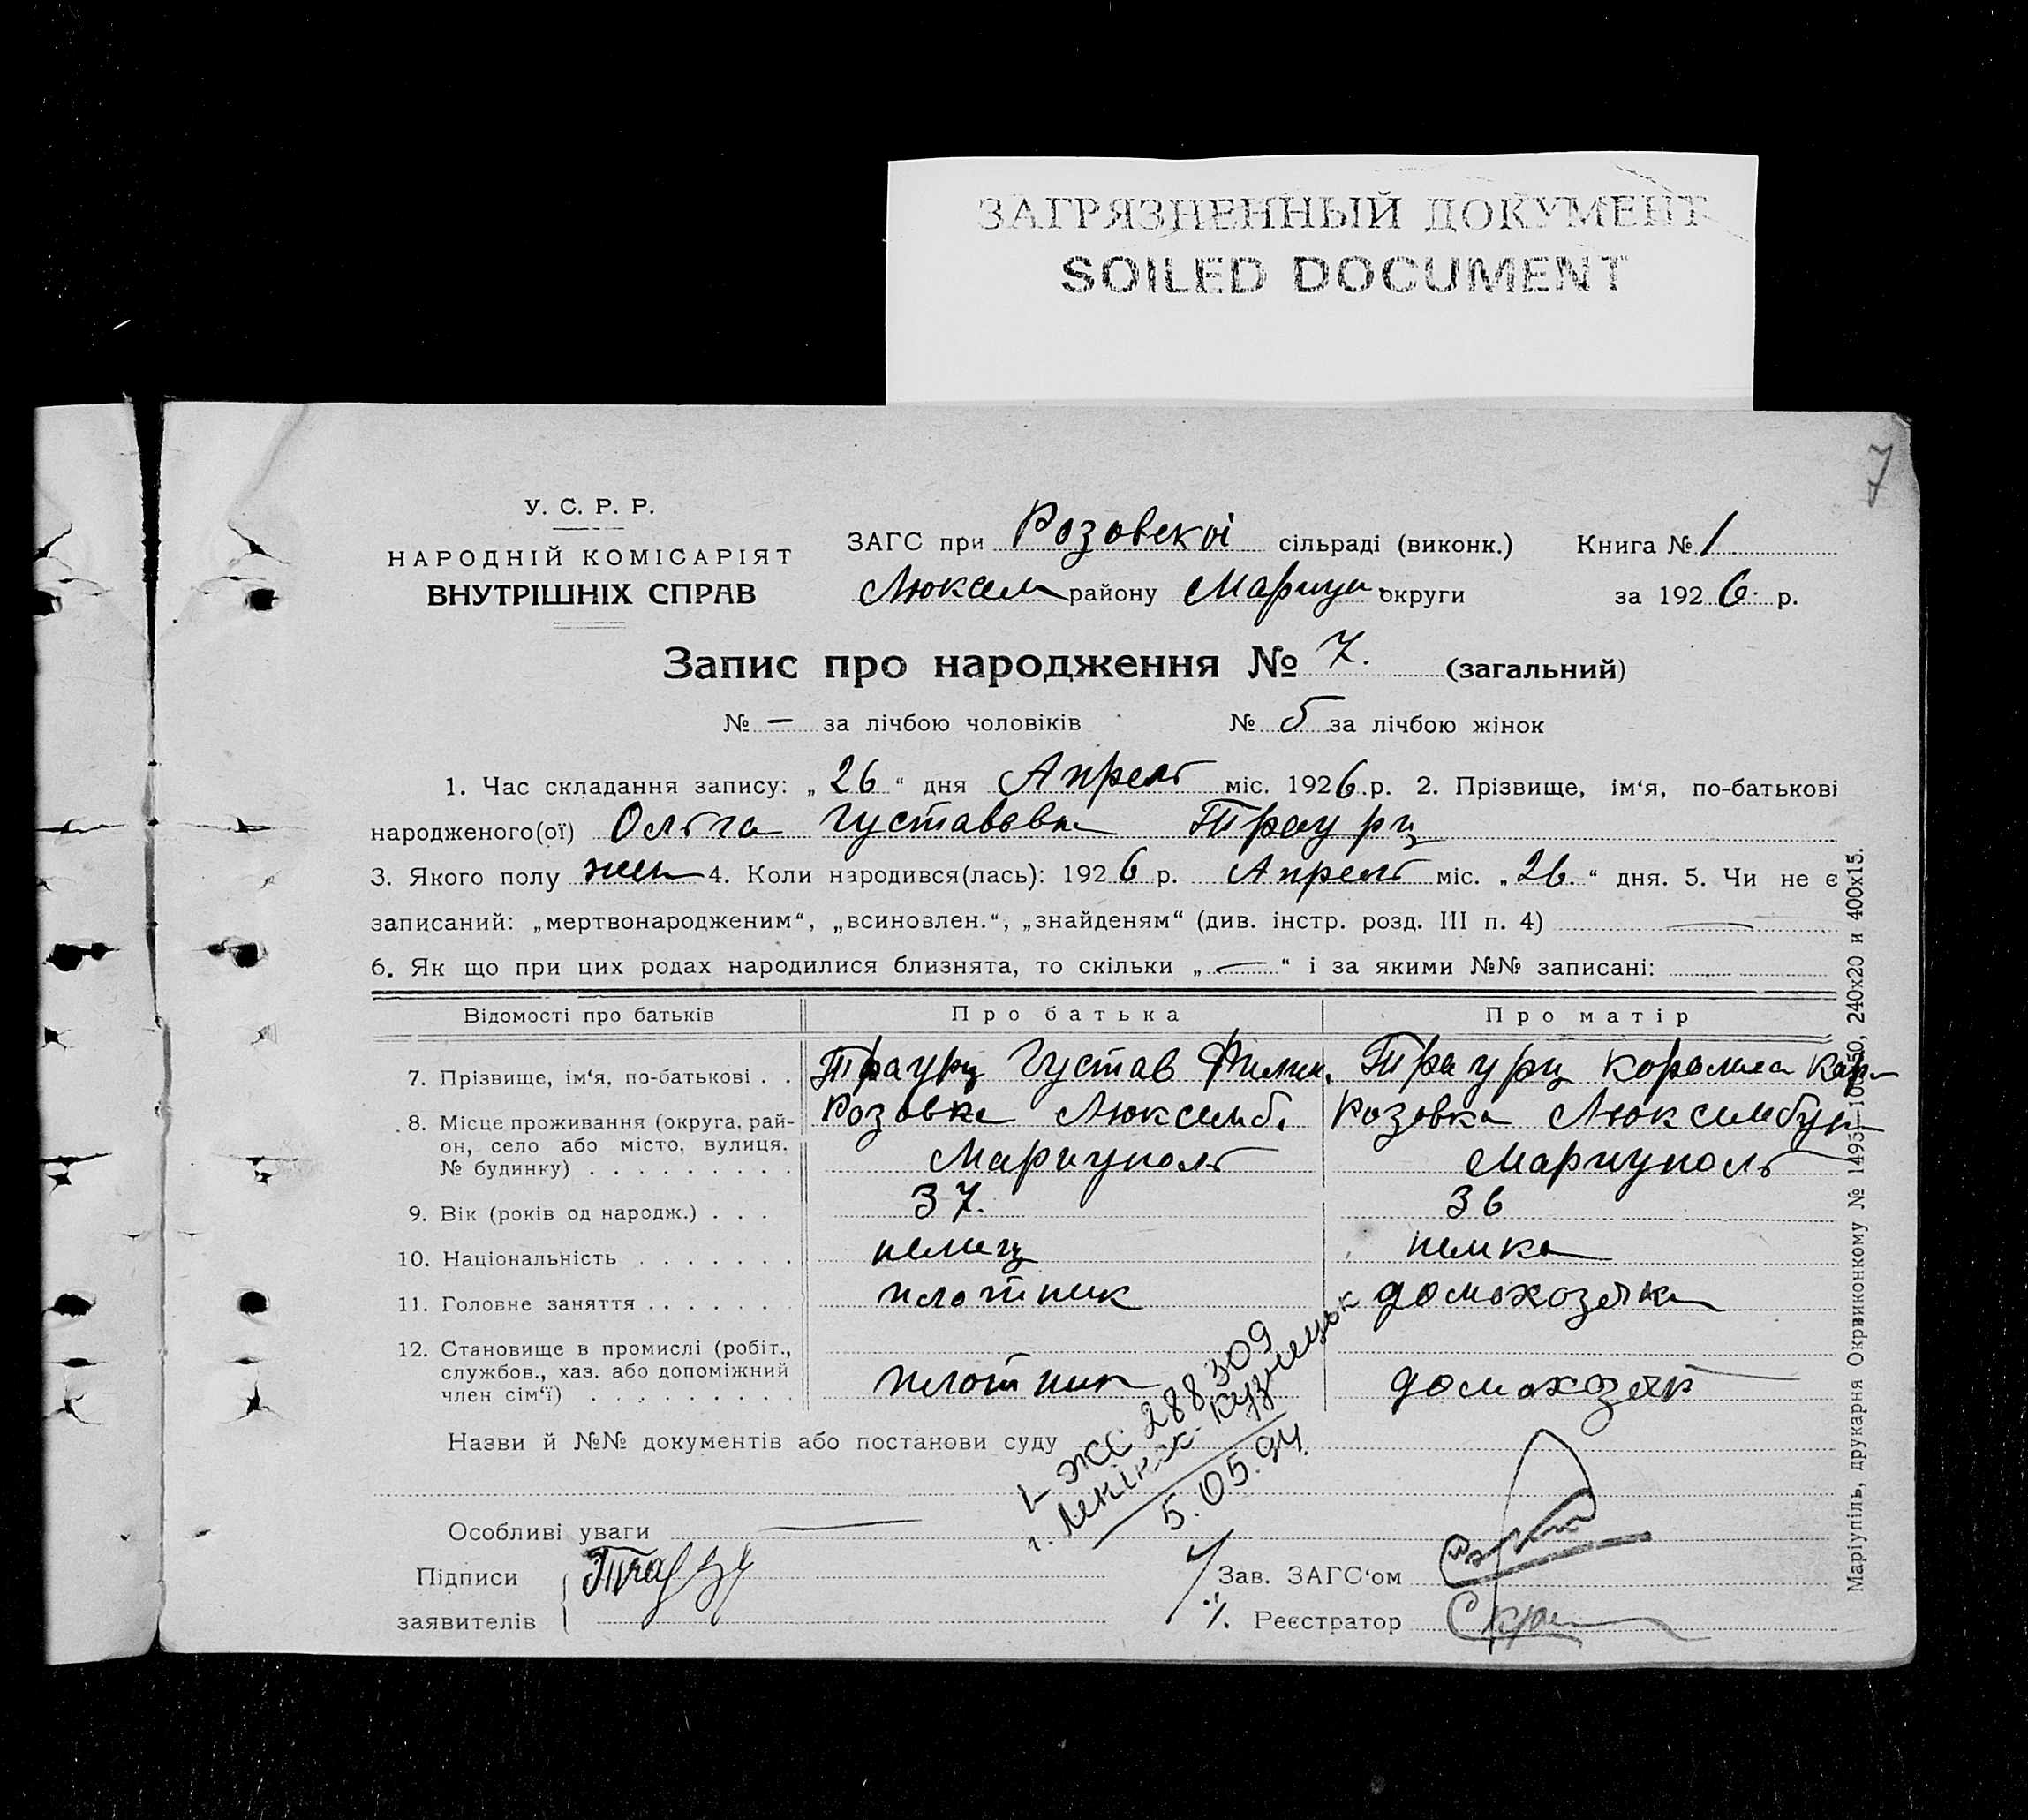 ЗАГРЯЗНЕННЫЙ ДОКУМЕНТ
SOILED DOCUMENT
7
У. С. Р. Р.
НАРОДНІЙ КОМІСАРІЯТ
ВНУТРІШНІХ СПРАВ
ЗАГС при Розовской сільраді (виконк.) Книга № 1
Люксем району Мариуп округи за 1926 р.
Запис про народження № 7. (загальний)
№ — за лічбою чоловіків № 5 за лічбою жінок
1. Час складання запису: „26“ дня Апрель міс. 1926 р. 2. Прізвище, ім‘я, по-батькові
народженого(ої) Ольга Густавовна Траурц
3. Якого полу жен 4. Коли народився(лась): 1926 р. Апрель міс. „26.“ дня. 5. Чи не є
записаний: „мертвонародженим“, „всиновлен.“, „знайденям“ (див. інстр. розд. III п. 4) —
6. Як що при цих родах народилися близнята, то скільки „—“ і за якими №№ записані:
Відомості про батьків Про батька Про матір
7. Прізвище, ім‘я, по-батькові . . Траурц Густав Филип. Траурц Кар
8. Місце проживання (округа, рай- Розовка Люксемб. Розовка Люксембург
он, село або місто, вулиця, Мариуполь Мариуполь
№ будинку) . . . . . . . . .
9. Вік (років од народж.) . . . 37. 36
10. Національність . . . . . . . немец немка
11. Головне заняття . . . . . . плотник домохозяйка
12. Становище в промислі (робіт.,
службов., хаз. або допоміжний плотник домохозяйк
член сім‘ї) . . . . . . . . .
Назви й №№ документів або постанови суду
I-ЭЖС 288309
г. Ленінск-Кузнецьк
5.05.94.
Особливі уваги —
Підписи
заявителів
Зав. ЗАГС‘ом
Реєстратор
Маріупіль, друкарня Окрвиконкому № 1495—100×50, 240x20 и 400x15.